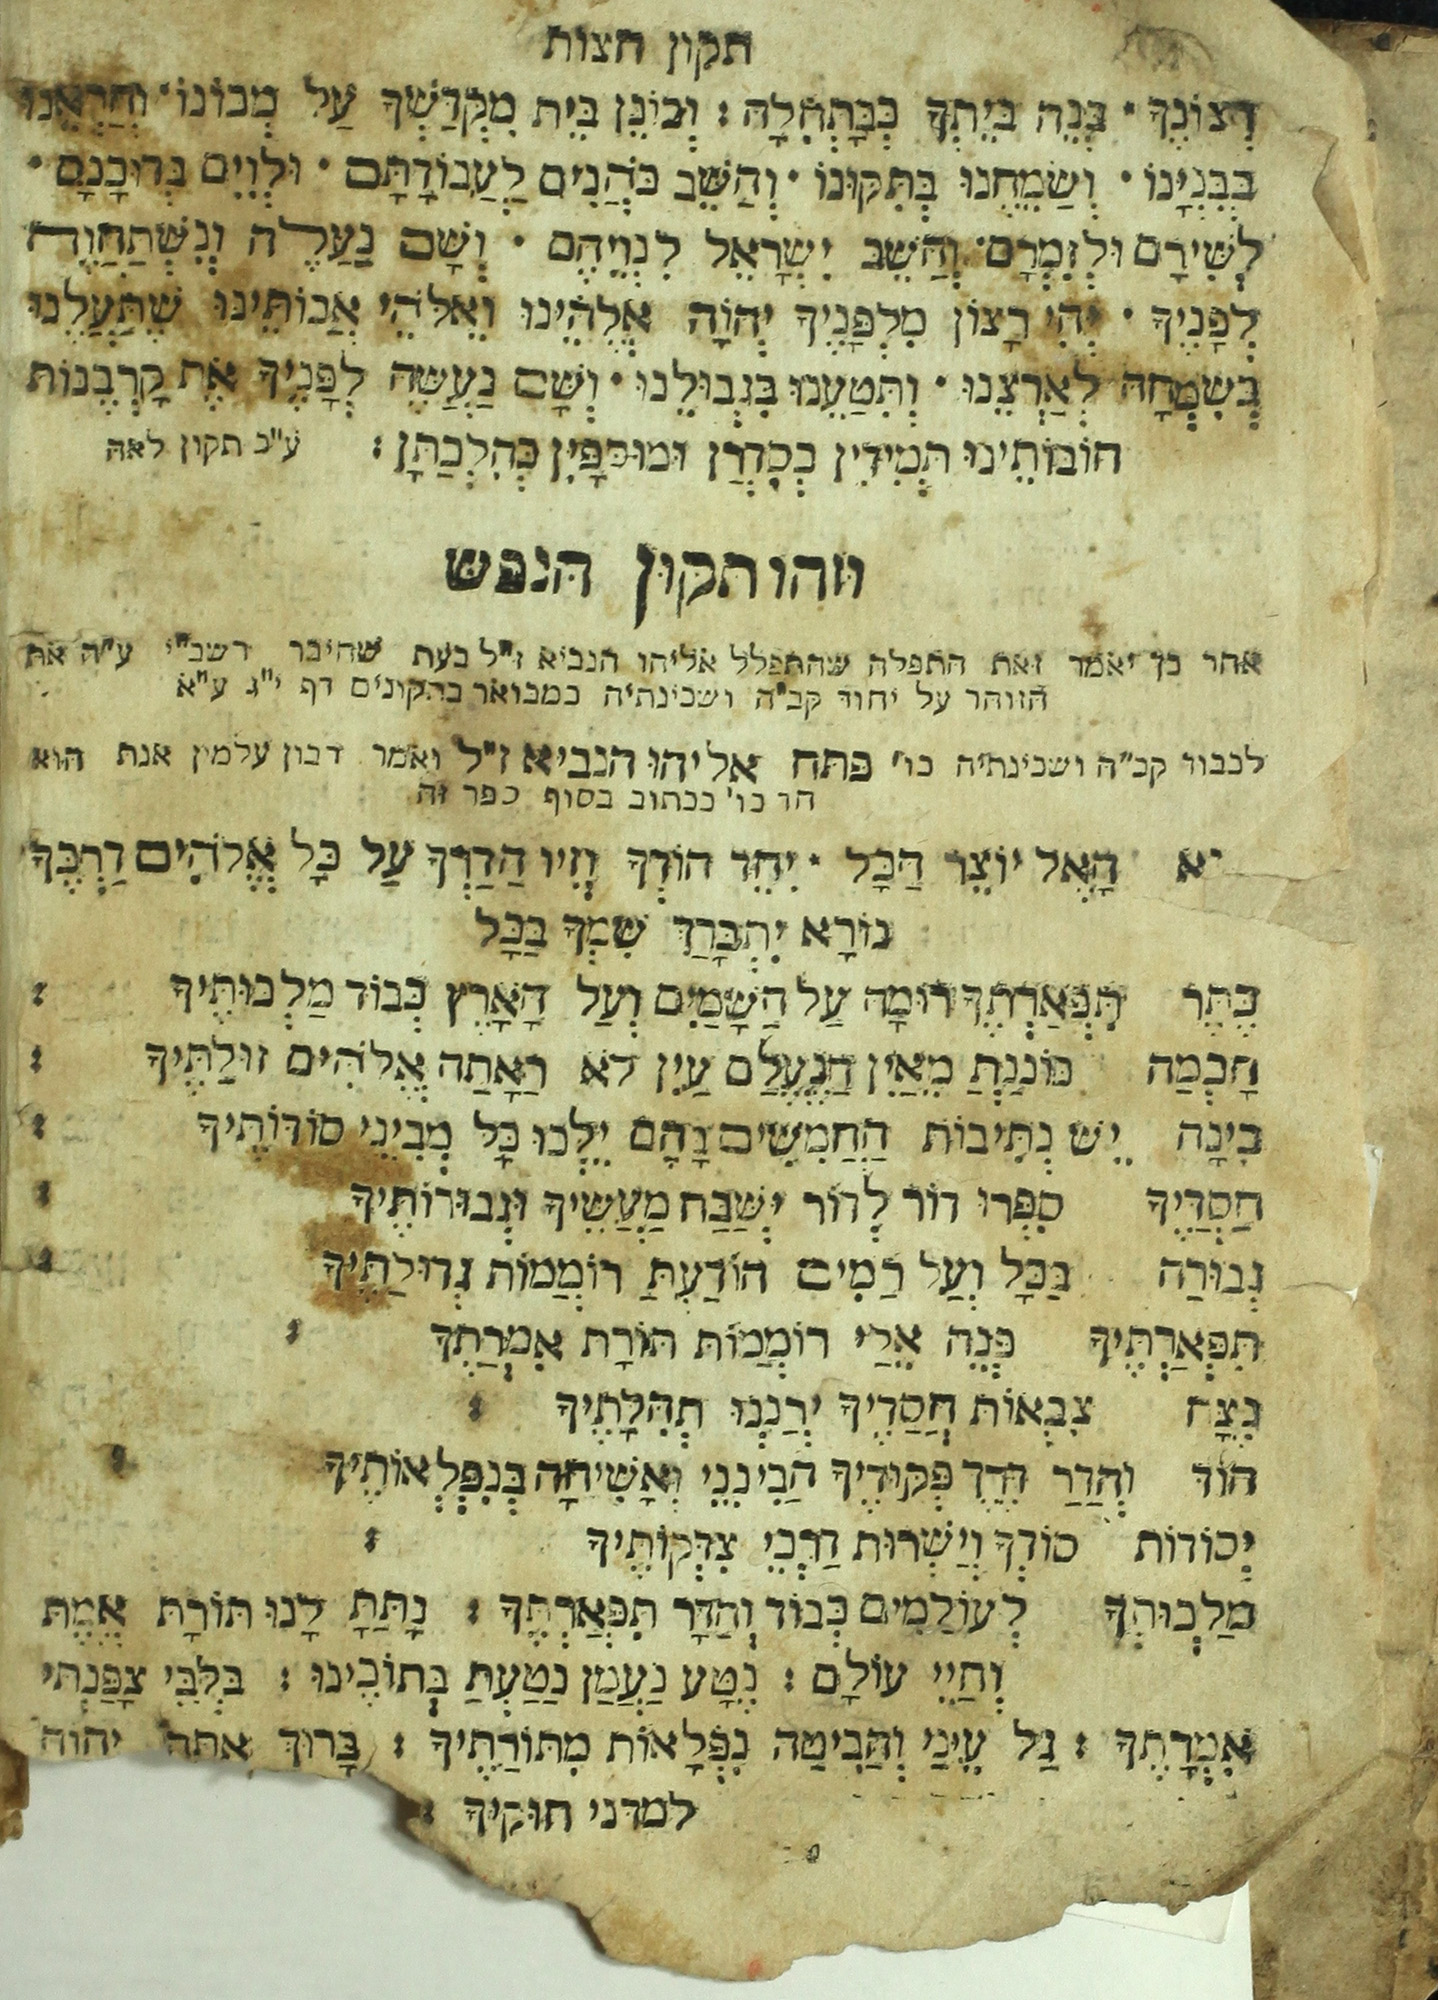 תקון חצות
רְצוֹנֶךָ · בְּנֵה בֵיתְךָ כְּבַתְּחִלָה : וְכוֹנֵן בֵּית מִקְדָּשְׁךָ עַל מְכוֹנוֹ · וְהַרְאֵנוּ
בְּבִנְיָנוֹ · וְשַׂמְּחֵנוּ בְּתִקּוּנוֹ · וְהָשֵׁב כֹּהֲנִים לַעֲבוֹדָתָם · וּלְוִיִּם בְּדוּכָנָם ·
לְשִׁירָם וּלְזִמְרָם · וְהָשֵׁב יִשְׂרָאֵל לִנְוֵיהֶם · וְשָׁם נַעֲלֶה וְנִשְׁתַּחֲוֶה
לְפָנֶיךָ · יְהִי רָצוֹן מִלְּפָנֶיךָ יְהוָֹה אֱלֹהֵינוּ וֵאלֹהֵי אֲבוֹתֵינוּ שֶׁתַּעֲלֵנוּ
בְּשִׂמְחָה לְאַרְצֵנוּ · וְתִטָּעֵנוּ בִּגְבוּלֵנוּ · וְשָׁם נַעֲשֶׂה לְפָנֶיךָ אֶת קָרְבְּנוֹת
חוֹבוֹתֵינוּ תְּמִידִין כְּסִדְרָן וּמוּסָפִין כְּהִלְכָתָן : ע"כ תקון לאה
וזהו תקון הנפש
אחר כך יאמר זאת התפלה שהתפלל אליהו הנביא ז"ל בעת שחיבר רשב"י ע"ה את
הזוהר על יחוד קב"ה ושכינתיה כמבואר בתקונים דף י"ג ע"א
לכבוד קב"ה ושכינתיה כו' פתח אליהו הנביא ז"ל ואמר רבון עלמין אנת הוא
חד כו' ככתוב בסוף ספר זה
יא הָאֵל יוֹצֵר הַכָּל · יִחֵד הוֹדְךָ וְזִיו הַדָרְךָ עַל כָּל אֱלֹהִים דַרְכֶּךָ
נוֹרָא יִתְבָּרַךְ שִׁמְךָ בַכָּל
כֶּתֶר תִּפְאַרְתֶּךָ רוּמָה עַל הַשָּׁמַיִם וְעַל הָאָרֶץ כְּבוֹד מַלְכוּתֶיךָ :
חָכְמַה כּוֹנַנְתַ מֵאַיִן הַנֶּעֱלַם עַיִן לֹא רַאָתַה אֱלֹהִים זוּלַתֶיךָ :
בִּינָה יֵשׁ נְתִיבוֹת הַחֲמִשִׁים בָּהֶם יֵלְכוּ כָּל מְבִינֵי סוֹדוֹתֶיךָ :
חַסְדֶיךָ סִפְּרוּ דוֹר לְדוֹר יְשַׁבַּח מַעֲשֶׂיךָ וּגְבוּרוֹתֶיךָ :
גְבוּרַה בַּכָּל וְעַל רַמִים הוֹדַעְתַּ רוֹמֲמוֹת גְדוּלַתֶּיךָ :
תִּפְאַרְתֶּיךָ בְּנֵה אֵלַי רוֹמֲמוֹת תּוֹרַת אִמְרַתֶךָ :
נֶצָח צִבְאוֹת חֲסַדֶיךָ יְרַנְנוּ תְּהִלָתֶיךָ :
הוֹד וְהָדַר דֶרֶךְ פִּקוּדֶיךָ הַבִינֵנִי וְאָשִׂיחָה בְּנִפְלְאוֹתֶיךָ :
יְסוֹדוֹת סוֹדְךָ וְיַשְׁרוּת דַרְכֵי צִדְקוֹתֶיךָ :
מַלְכוּתְךָ לְעוֹלַמִים כְּבוֹד וְהַדָר תִּפְאַרְתֶּךָ : נָתַתָּ לָנוּ תּוֹרַת אֱמֶת
וְחַיֵי עוֹלָם : נֶטָע נַעֲמַן נַטַעְתַּ בְּתוֹכֵינוּ : בְּלִבִּי צָפַנְתִּי
אִמְרָתֶךָ : גַל עֵינַי וְהַבִּיטַה נִפְלָאוֹת מִתּוֹרַתֶיךָ : בָּרוּךְ אתה יהוה
למדני חוקיך :